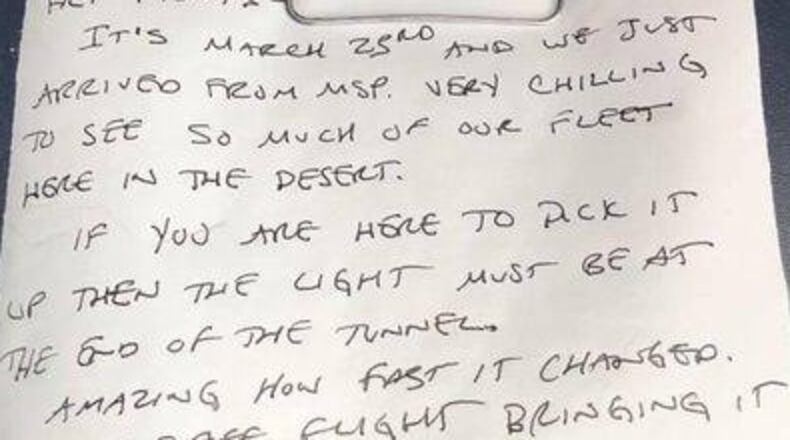 IT'S MARCH 23RD AND WE JUST
ARRIVED FROM MSP. VERY CHILLING
TO SEE SO MUCH OF OUR FLEET
HERE IN THE DESERT.
IF YOU ARE HERE TO PICK IT
UP THEN THE LIGHT MUST BE AT
THE END OF THE TUNNEL.
AMAZING HOW FAST IT CHANGED.
FLIGHT BRINGING IT